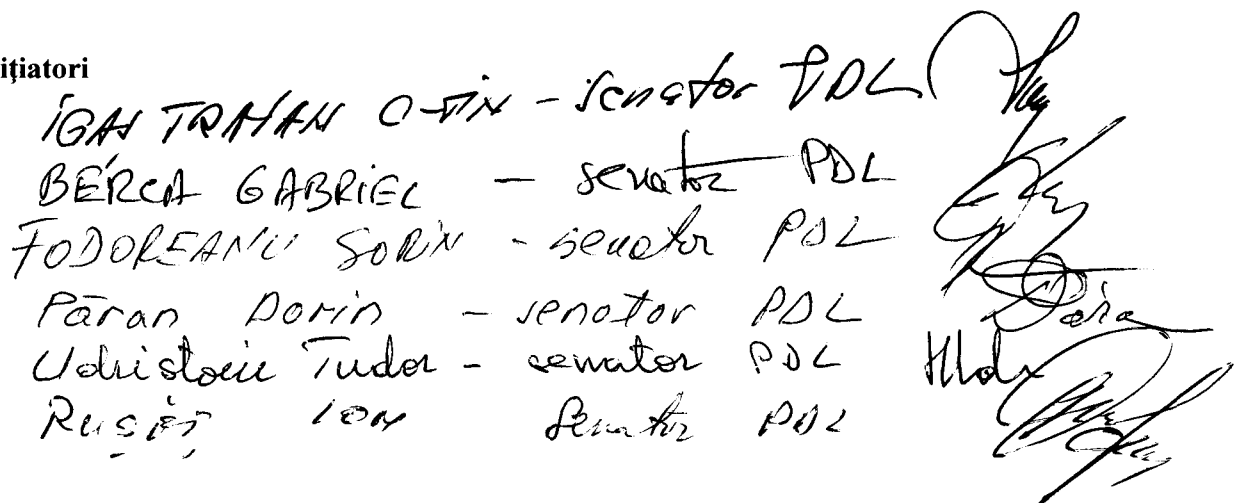 ițiatori
IGAS TRAIAN C-TIN - senator PDL
BERCA GABRIEL - senator PDL
FODOREANU SORIN - senator PDL
Pāran Dorin - senator PDL
Udriștoiu Tudor - senator PDL
Rușeț ION Senator PDL